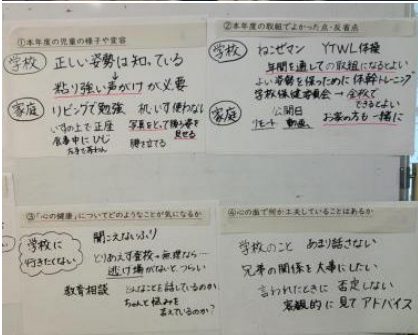 ①本年度の児童の様子や変容
学校 正しい姿勢は知っている
↓
粘り強い声がけが必要
家庭 リビングで勉強 机、いす使わない
いすの上で正座 写真をとって勝る姿を
食事中にひじ 見せる
左手で茶わん 腰を立てる
②本年度の取組でよかった点・反省点
学校 ねこぜマン YTWL体操
年間を通しての取組になるとよい
よい姿勢を保つために体幹トレーニング
学校保健委員会→全校で
できるとよい
家庭 公開日 お家の方も一緒に
リモート 動画
③「心の健康」についてどのようなことが気になるか
学校に 聞こえないふり
行きたくない とりあえず登校→無理なら―
逃げ場がないと、つらい
教育相談 どんなことを話しているのか
ちゃんと悩みを
言えているのか?
④心の面で何か工夫していることはあるか
学校のこと あまり話さない
兄弟の関係を大事にしたい
言われたときに否定しない
客観的に見てアドバイス